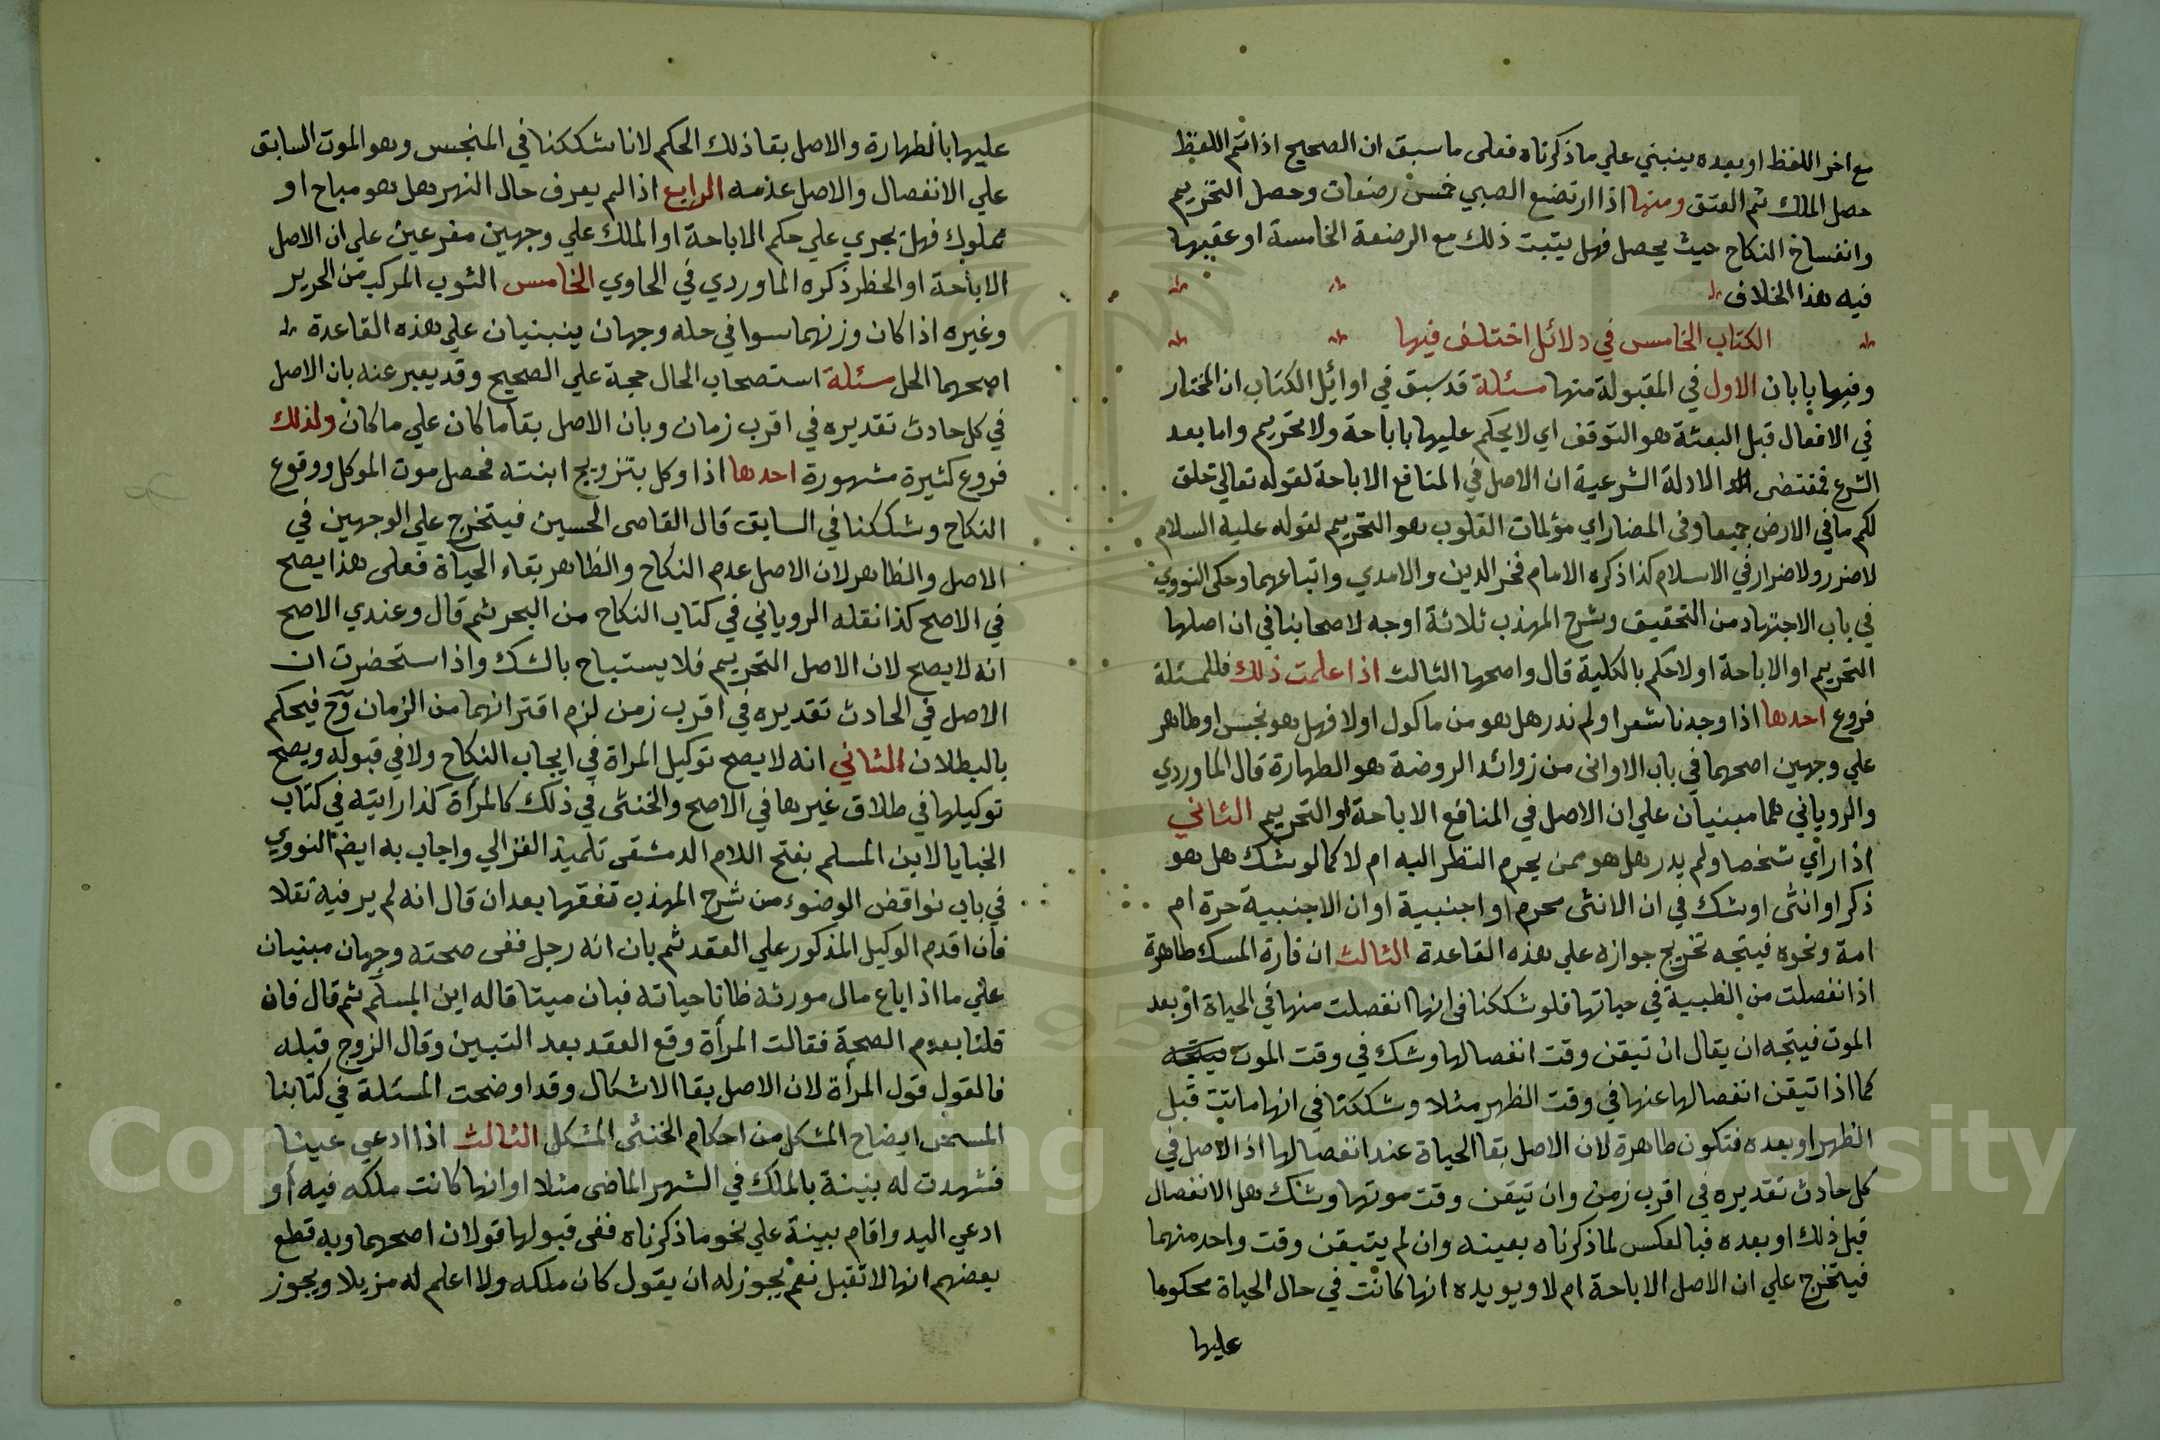 مع اخر اللفظ او بعده ينبني علي ما ذكرناه فعلي ما سبق ان الصحيح اذا تم اللفظ
حصل الملك ثم العتق ومنها اذا ارتضع الصبي خمس رضعات وحصل التحريم
وانفساخ النكاح حيث يحصل فهل يثبت ذلك مع الرضعة الخامسة او عقبها
فيه هذا الخلاف
الكتاب الخامس في دلائل اختلف فيها
وفيها بابان الاول في المقبولة منها مسئلة قد سبق في اوائل الكتاب ان المختار
في الافعال قبل البعثة هو التوقف اي لا يحكم عليها باباحة ولا تحريم واما بعد
الشرع فمقتضى الادلة الشرعية ان الاصل في المنافع الاباحة لقوله تعالي خلق
لكم ما في الارض جميعا وفى المضار اي مؤلمات القلوب هو التحريم لقوله عليه السلام
لا ضرر ولا ضرار في الاسلام كذا ذكره الامام فخر الدين والامدي واتباعهما وحكى النووي
في باب الاجتهاد من التحقيق وشرح المهذب ثلاثة اوجه لاصحابنا في ان اصلها
التحريم او الاباحة او لا حكم بالكلية قال واصحها الثالث اذا علمت ذلك فللمسئلة
فروع احدها اذا وجدنا شعرا ولم ندر هل هو من ماكول اولا فهل هو نجس او طاهر
علي وجهين اصحهما في باب الاوانى من زوائد الروضة هو الطهارة قال الماوردي
والروياني هما مبنيان علي ان الاصل في المنافع الاباحة او التحريم الثاني
اذا راي شخصا ولم يدر هل هو ممن يحرم النظر اليه ام لا كما لو شك هل هو
ذكر او انثى او شك في ان الانثى محرم او اجنبية او ان الاجنبية حرة ام
امة ونحوه فيتجه تخريج جوازه علي هذه القاعدة الثالث ان فارة المسك طاهرة
اذا نفصلت من الظبية في حياتها فلو شككنا فى انها انفصلت منها في الحياة او بعد
الموت فيتجه ان يقال ان تيقن وقت انفصالها وشك في وقت الموت فيتجه
كما اذا تيقن انفصالها عنها في وقت الظهر مثلا وشككنا في انها ماتت قبل
الظهر او بعده فتكون طاهرة لان الاصل بقا الحياة عند انفصالها اذ الاصل في
كل حادث تقديره في اقرب زمن وان تيقن وقت موتها وشك هل الانفصال
قبل ذلك او بعده فبالعكس لما ذكرناه بعينه وان لم يتيقن وقت واحد منهما
فيتخرج علي ان الاصل الاباحة ام لا ويويده انها كانت في حال الحياة محكوما
عليها
عليها بالطهارة والاصل بقا ذلك الحكم لانا شككنا في المنجس وهو الموت السابق
علي الانفصال والاصل عدمه الرابع اذا لم يعرف حال النهر هل هو مباح او
مملوك فهل يجري علي حكم الاباحة او الملك علي وجهين مفرعين علي ان الاصل
الاباحة او الحظر ذكره الماوردي في الحاوي الخامس الثوب المركب من الحرير
وغيره اذا كان وزنهما سوا في حله وجهان ينبنيان علي هذه القاعدة
اصحهما الحل مسئلة استصحاب الحال حجة علي الصحيح وقد يعبر عنه بان الاصل
في كل حادث تقديره في اقرب زمان وبان الاصل بقا ما كان علي ما كان ولذلك
فروع كثيرة مشهورة احدها اذا وكل بتزويج ابنته فحصل موت الموكل ووقوع
النكاح وشككنا في السابق قال القاضى الحسين فيتخرج علي الوجهين في
الاصل والظاهر لان الاصل عدم النكاح والظاهر بقاء الحياة فعلى هذا يصح
في الاصح كذا نقله الروياني في كتاب النكاح من البحر ثم قال وعندي الاصح
انه لا يصح لان الاصل التحريم فلا يستباح بالشك واذا ستحضرت ان
الاصل في الحادث تقديره في اقرب زمن لزم اقترانهما من الزمان وح فيحكم
بالبطلان الثاني انه لا يصح توكيل المراة في ايجاب النكاح ولا في قبوله ويصح
توكيلها في طلاق غيرها في الاصح والخنثى في ذلك كالمرأة كذا رايته في كتاب
الخبايا لابن المسلم بفتح اللام الدمشقى تلميذ الغزالي واجاب به ايضا النووي
في باب نواقض الوضوء من شرح المهذب تفقها بعد ان قال انه لم ير فيه نقلا
فان اقدم الوكيل المذكور علي العقد ثم بان انه رجل ففى صحته وجهان مبنيان
علي ما اذا باع مال مورثه ظانا حياته فبان ميتا قاله ابن المسلم ثم قال فان
قلنا بعدم الصحة فقالت المرأة وقع العقد بعد التبين وقال الزوج قبله
فالقول قول المرأة لان الاصل بقا الاشكال وقد اوضحت المسئلة في كتابنا
المسمى ايضاح المشكل من احكام الخنثى المشكل الثالث اذا ادعي عينا
فشهدت له بينة بالملك في الشهر الماضى مثلا او انها كانت ملكه فيه او
ادعي اليد واقام بينة علي نحو ما ذكرناه ففى قبولها قولان اصحهما وبه قطع
بعضهم انها لا تقبل نعم يجوز له ان يقول كان ملكه ولا اعلم له مزيلا ويجوز